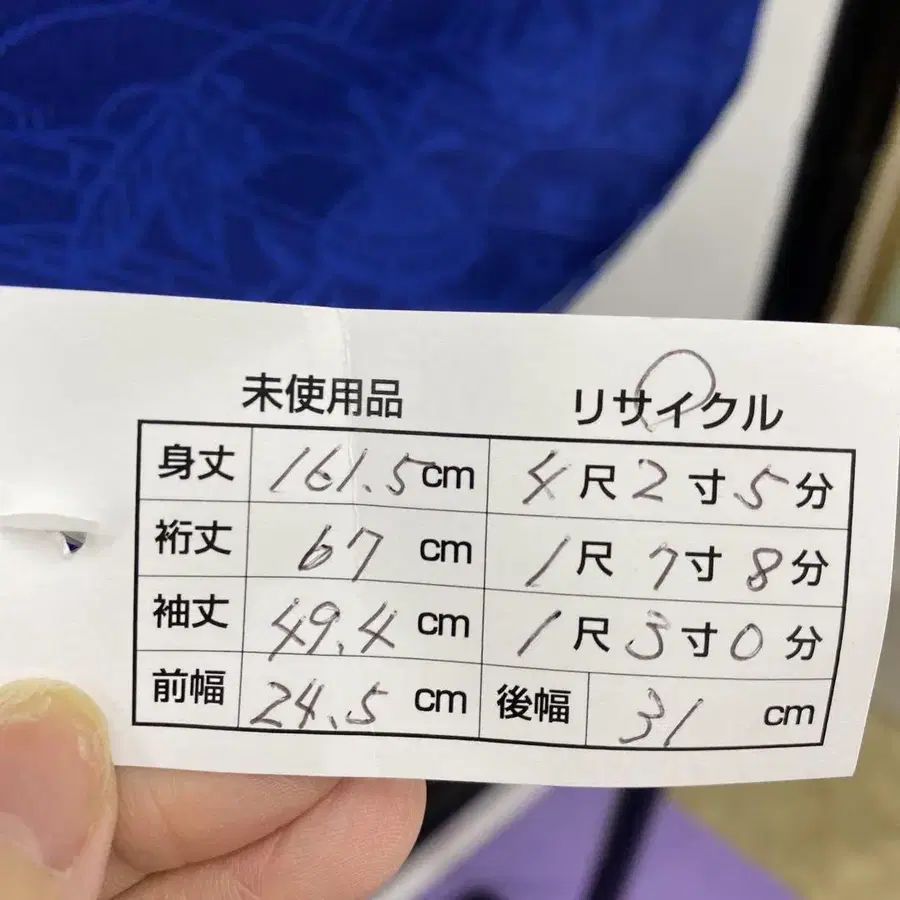 未使用品 リサイクル
身丈 161.5cm 4尺2寸5分
裄丈 67 cm 1尺7寸8分
袖丈 49.4 cm 1尺3寸0分
前幅 24.5 cm 後幅 31 cm